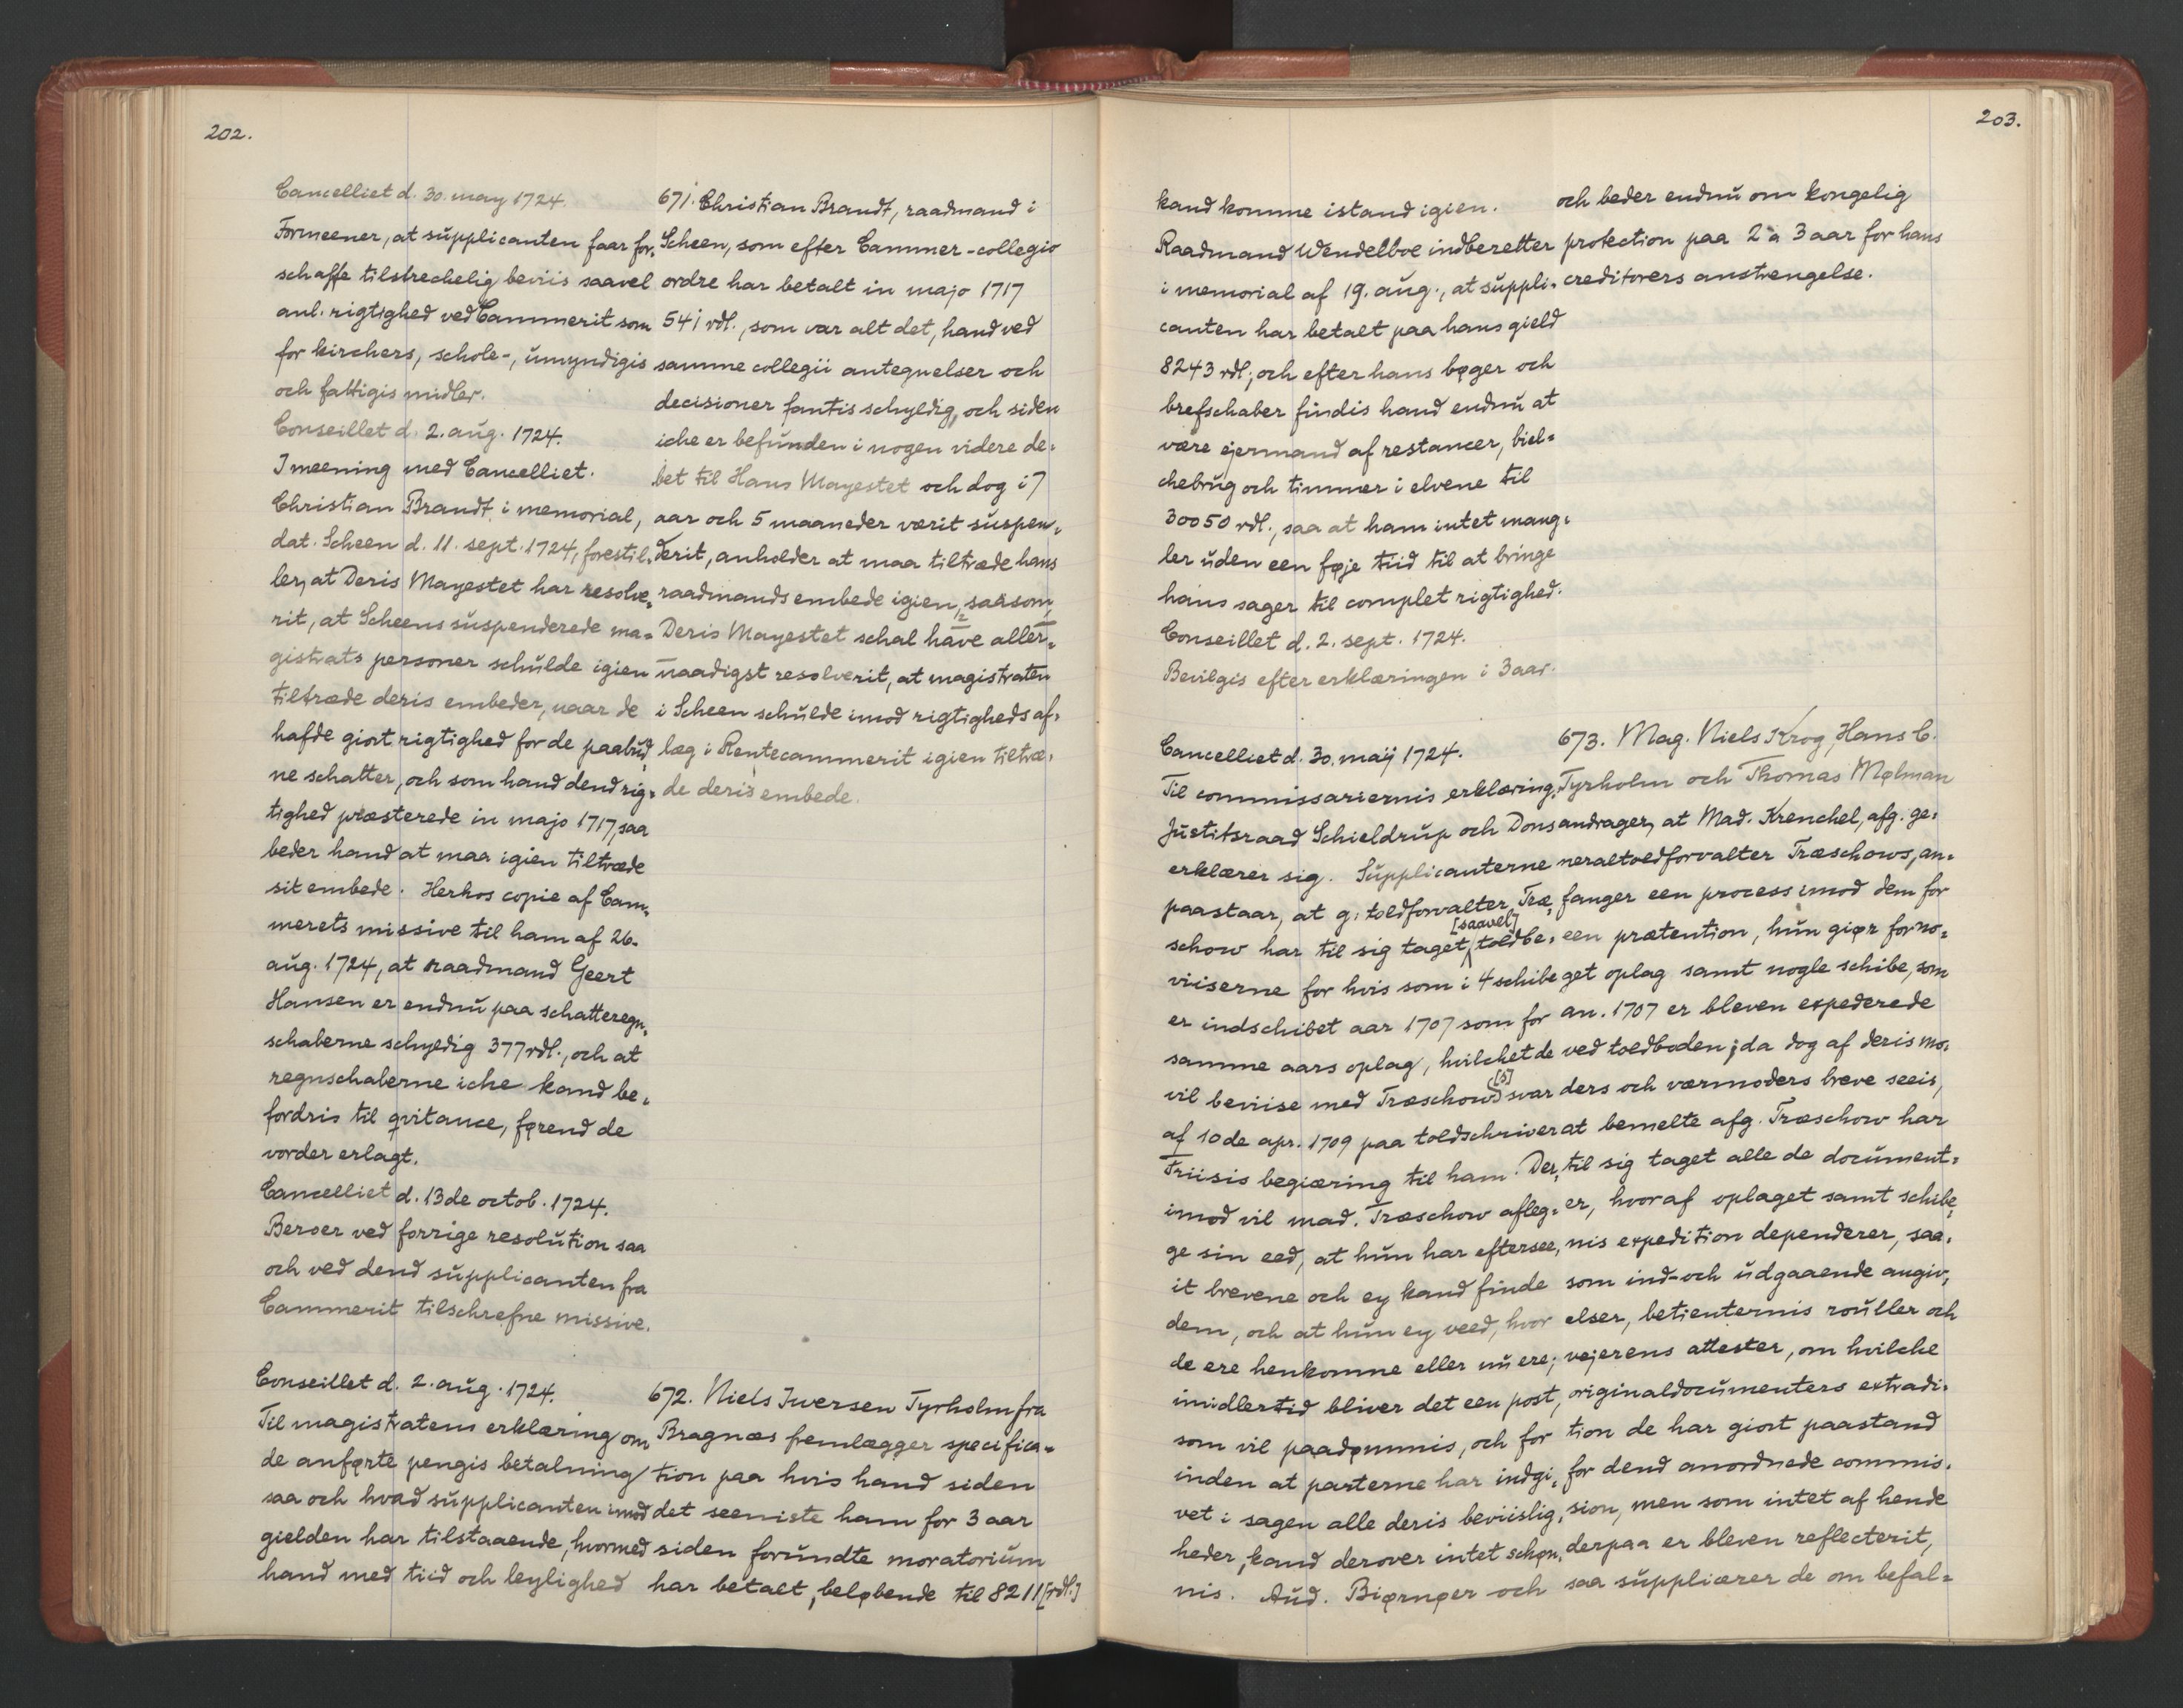 202.
Cancelliet d. 30. may 1724.
Formeener, at supplicanten faar for-
schaffe tilstrechelig beviis saavel
anl. rigtighed ved Cammerit som
for kirchers, schole-, umyndigis
och fattigis midler.
Conseillet d. 2. aug. 1724.
I meening med Cancelliet.
Christian Brandt i memorial,
dat. Scheen d. 11. sept. 1724, forestil-
ler, at Deris Mayestet har resolve-
rit, at Scheens suspenderede ma-
gistrats personer schulde igien
tiltræde deris embeder, naar de
hafde giort rigtighed for de paabud-
ne schatter, och som hand dend rig-
tighed præsterede in majo 1717, saa
beder hand at maa igien tiltræde
sit embede. Herhos copie af Cam-
merets missive til ham af 26.
aug. 1724, at raadmand Geert
Hansen er endnu paa schatteregn-
schaberne schyldig 377 rdl., och at
regnschaberne iche kand be-
fordris til qvitance, førend de
vorder erlagt.
Cancelliet d. 13de octob. 1724.
Beroer ved forrige resolution saa
och ved dend supplicanten fra
Cammerit tilschrefne missive.
671. Christian Brandt, raadmand i
Scheen, som efter Cammer-collegio
ordre har betalt in majo 1717
541 rdl., som var alt det, hand ved
samme collegii antegnelser och
decisioner fantis schyldig, och siden
iche er befunden i nogen videre de-
bet til Hans Mayestet och dog i 7
aar och 5 maaneder værit suspen-
derit, anholder at maa tiltræde hans
raadmands embede igien, saasom
Deris Mayestet schal have aller-
naadigst resolverit, at magistraten
i Scheen schulde imod rigtigheds af-
læg i Rentecammerit igien tiltræ-
de deris embede.
Conseillet d. 2. aug. 1724.
Til magistratens erklæring om
de anførte pengis betalning
saa och hvad supplicanten imod
gielden har tilstaaende, hvormed
hand med tiid och leylighed
672. Niels Iwersen Tyrholm fra
Bragnæs fremlægger specifica-
tion paa hvis hand siden
det seeniste ham for 3 aar
siden forundte moratorium
har betalt, beløbende til 8211 [rdl.]
203.
kand komme istand igien.
Raadmand Wendelboe indberetter
i memorial af 19. aug., at suppli-
canten har betalt paa hans gield
8243 rdl; och efter hans bøger och
brefschaber findis hand endnu at
være ejermand af restancer, biel-
chebrug och timmer i elvene til
30050 rdl., saa at ham intet mang-
ler uden een føje tiid til at bringe
hans sager til complet rigtighed.
Conseillet d. 2. sept. 1724.
Bevilgis efter erklæringen i 3 aar.
och beder endnu om kongelig
protection paa 2 à 3 aar for hans
creditorers anstrengelse.
Cancelliet d. 30. maij 1724.
Til commissariernis erklæring.
Justitsraad Schieldrup och Dons
erklærer sig. Supplicanterne
paastaar, at g. toldforvalter Træ-
schow har til sig taget [saavel] toldbe-
viiserne for hvis som i 4 schibe
er indschibet aar 1707 som for
samme aars oplag, hvilchet de
vil beviise med Træschow[s] svar
af 10de apr. 1709 paa toldschriver
Friisis begiæring til ham. Der-
imod vil mad. Træschow afleg-
ge sin eed, at hun har eftersee-
it brevene och ey kand finde
dem, och at hun ey veed, hvor
de ere henkomne eller nu ere;
imidlertid bliver det een post,
som vil paadømmis, och for
inden at parterne har indgi-
vet i sagen alle deris beviislig-
heder, kand derover intet schøn-
nis. Aud. Biørnøer och
673. Mag. Niels Krog, Hans C.
Tyrholm och Thomas Mølman
andrager, at Mad. Krenchel, afg. ge-
neraltoldforvalter Træschows, an-
fanger een process imod dem for
een prætention, hun giør for no-
get oplag samt nogle schibe, som
an. 1707 er bleven expederede
ved toldboden; da dog af deris mo-
ders och værmoders breve seeis,
at bemelte afg. Træschow har
til sig taget alle de document-
er, hvoraf oplaget samt schibe-
nis expedition dependerer, saa-
som ind- och udgaaende angiv-
elser, betienternis roüller och
vejerens attester, om hvilche
originaldocumenters extradi-
tion de har giort paastand
for dend anordnede commis-
sion, men som intet af hende
derpaa er bleven reflecterit,
saa suppliærer de om befal-